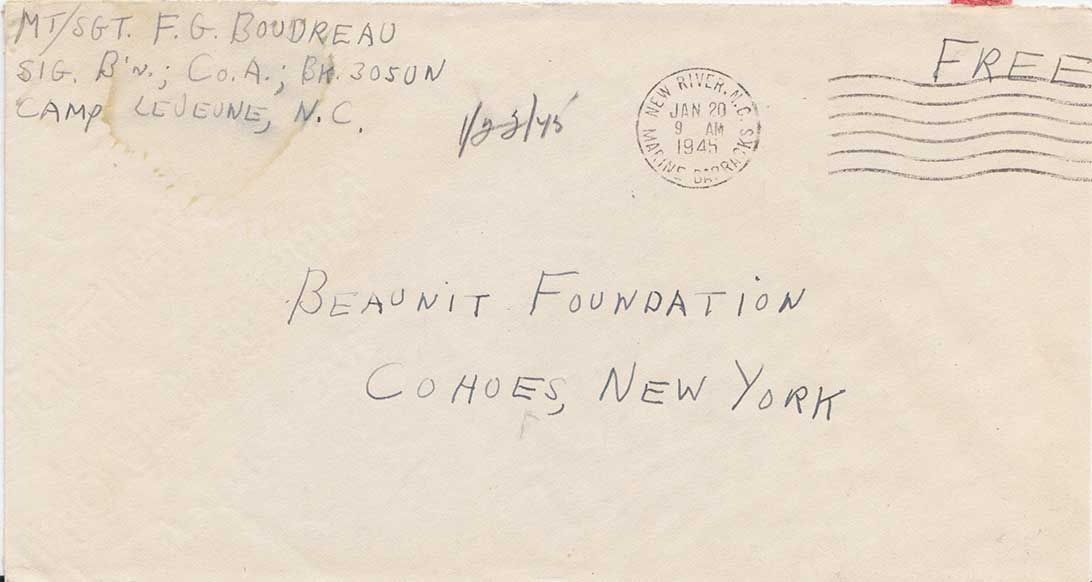 MT/SGT. F. G. BOUDREAU
SIG. B'N.; CO. A.; BK. 305UN
CAMP LEJEUNE, N.C.
1/22/45
NEW RIVER, N.C.
JAN 20
9 AM
1945
MARINE BARRACKS
FREE
BEAUNIT FOUNDATION
COHOES, NEW YORK